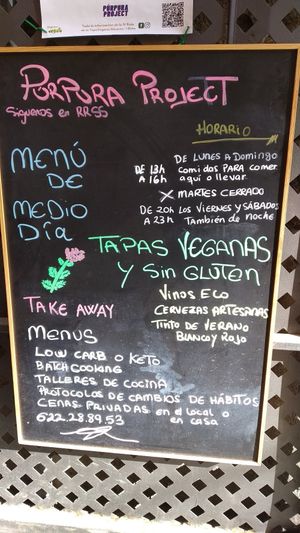 PÚRPURA
PROJECT
PÚRPURA PROJECT
Síguenos en RRSS
HORARIO
MENÚ
DE
MEDIO
DÍA
DE LUNES A DOMINGO
DE 13h comidas PARA comer
A 16h aquí o llevar
X MARTES CERRADO
DE 20h LOS VIERNES Y SÁBADOS
A 23h También de noche
TAPAS VEGANAS
Y Sin GLUTEN
TAKE AWAY
VINOS ECO
CERVEZAS ARTESANAS
TINTO DE VERANO
BLANCO Y ROJO
MENUS
LOW CARB O KETO
BATCH COOKING
TALLERES DE COCINA
PROTOCOLOS DE CAMBIOS DE HÁBITOS
CENAS PRIVADAS en el local o
en casa
622.28.89.53